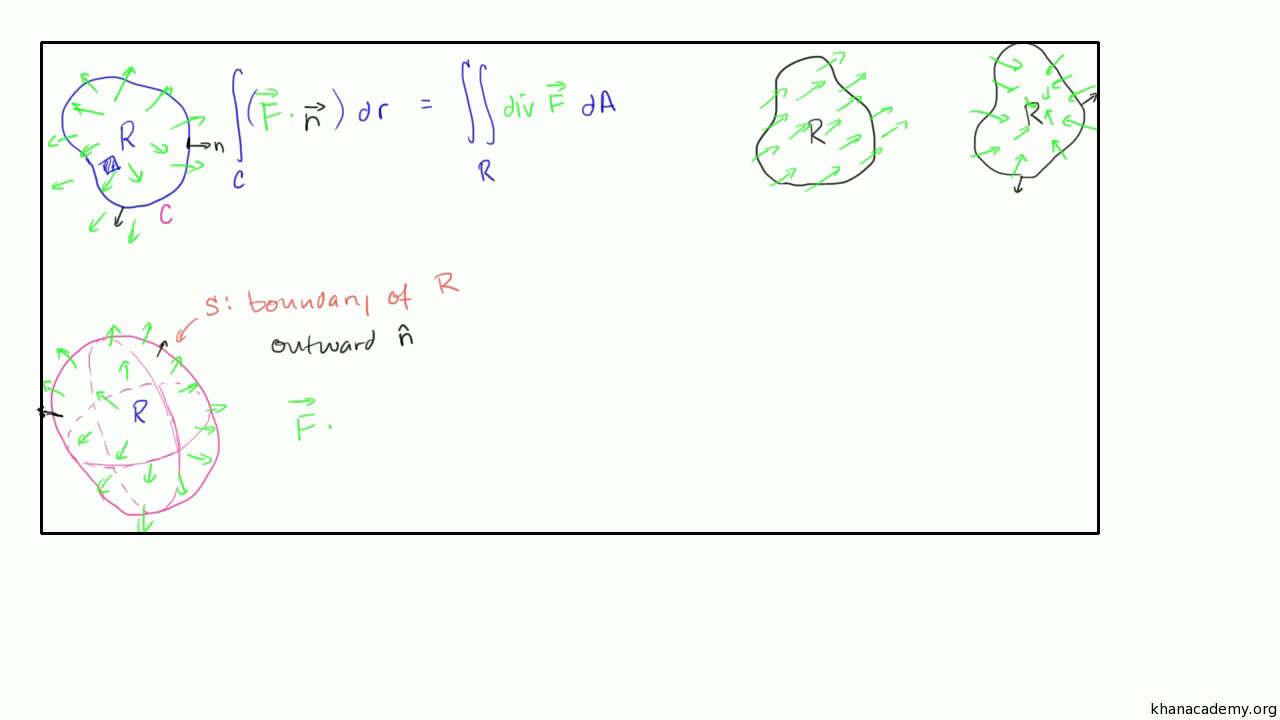 R
n
C
∫_C (F⃗ · n⃗) dr = ∬_R div F⃗ dA
R
R
S: boundary of R
outward n̂
R
F⃗ ·
khanacademy.org